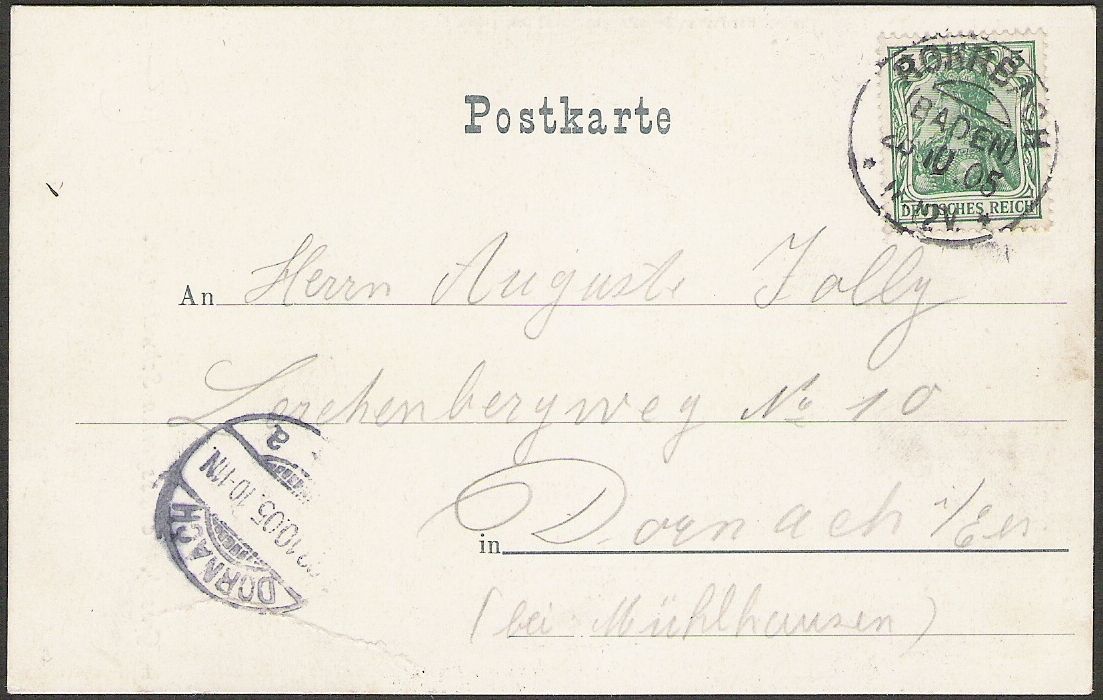 Postkarte
ROHRBACH
(BADEN)
10.05
11-12V.
DEUTSCHES REICH
An Herrn Auguste Jolly
Lerchenbergweg No 10
in Dornach i/Els
(bei Mühlhausen)
DORNACH
10.05.10-11N.
a